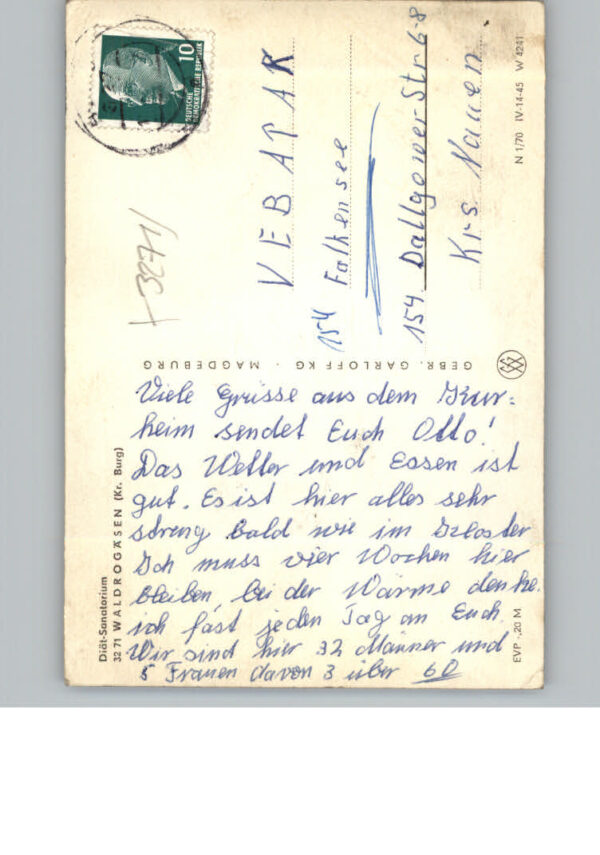 Diät-Sanatorium
3271 WALDROGÄSEN (Kr. Burg)
Viele Grüsse aus dem Kur=
heim sendet Euch Otto!
Das Wetter und Essen ist
gut. Es ist hier alles sehr
streng bald wie im Kloster
Ich muss vier Wochen hier
bleiben, bei der Wärme denke
ich fast jeden Tag an Euch.
Wir sind hier 32 Männer und
5 Frauen davon 3 über 60
EVP -,20 M
GEBR. GARLOFF KG · MAGDEBURG
10
DEUTSCHE
DEMOKRATISCHE REPUBLIK
3271
VEBATAR
154 Falkensee
154. Dallgower-Str 6-8
Krs. Nauen
N 1/70 IV-14-45 W 4241